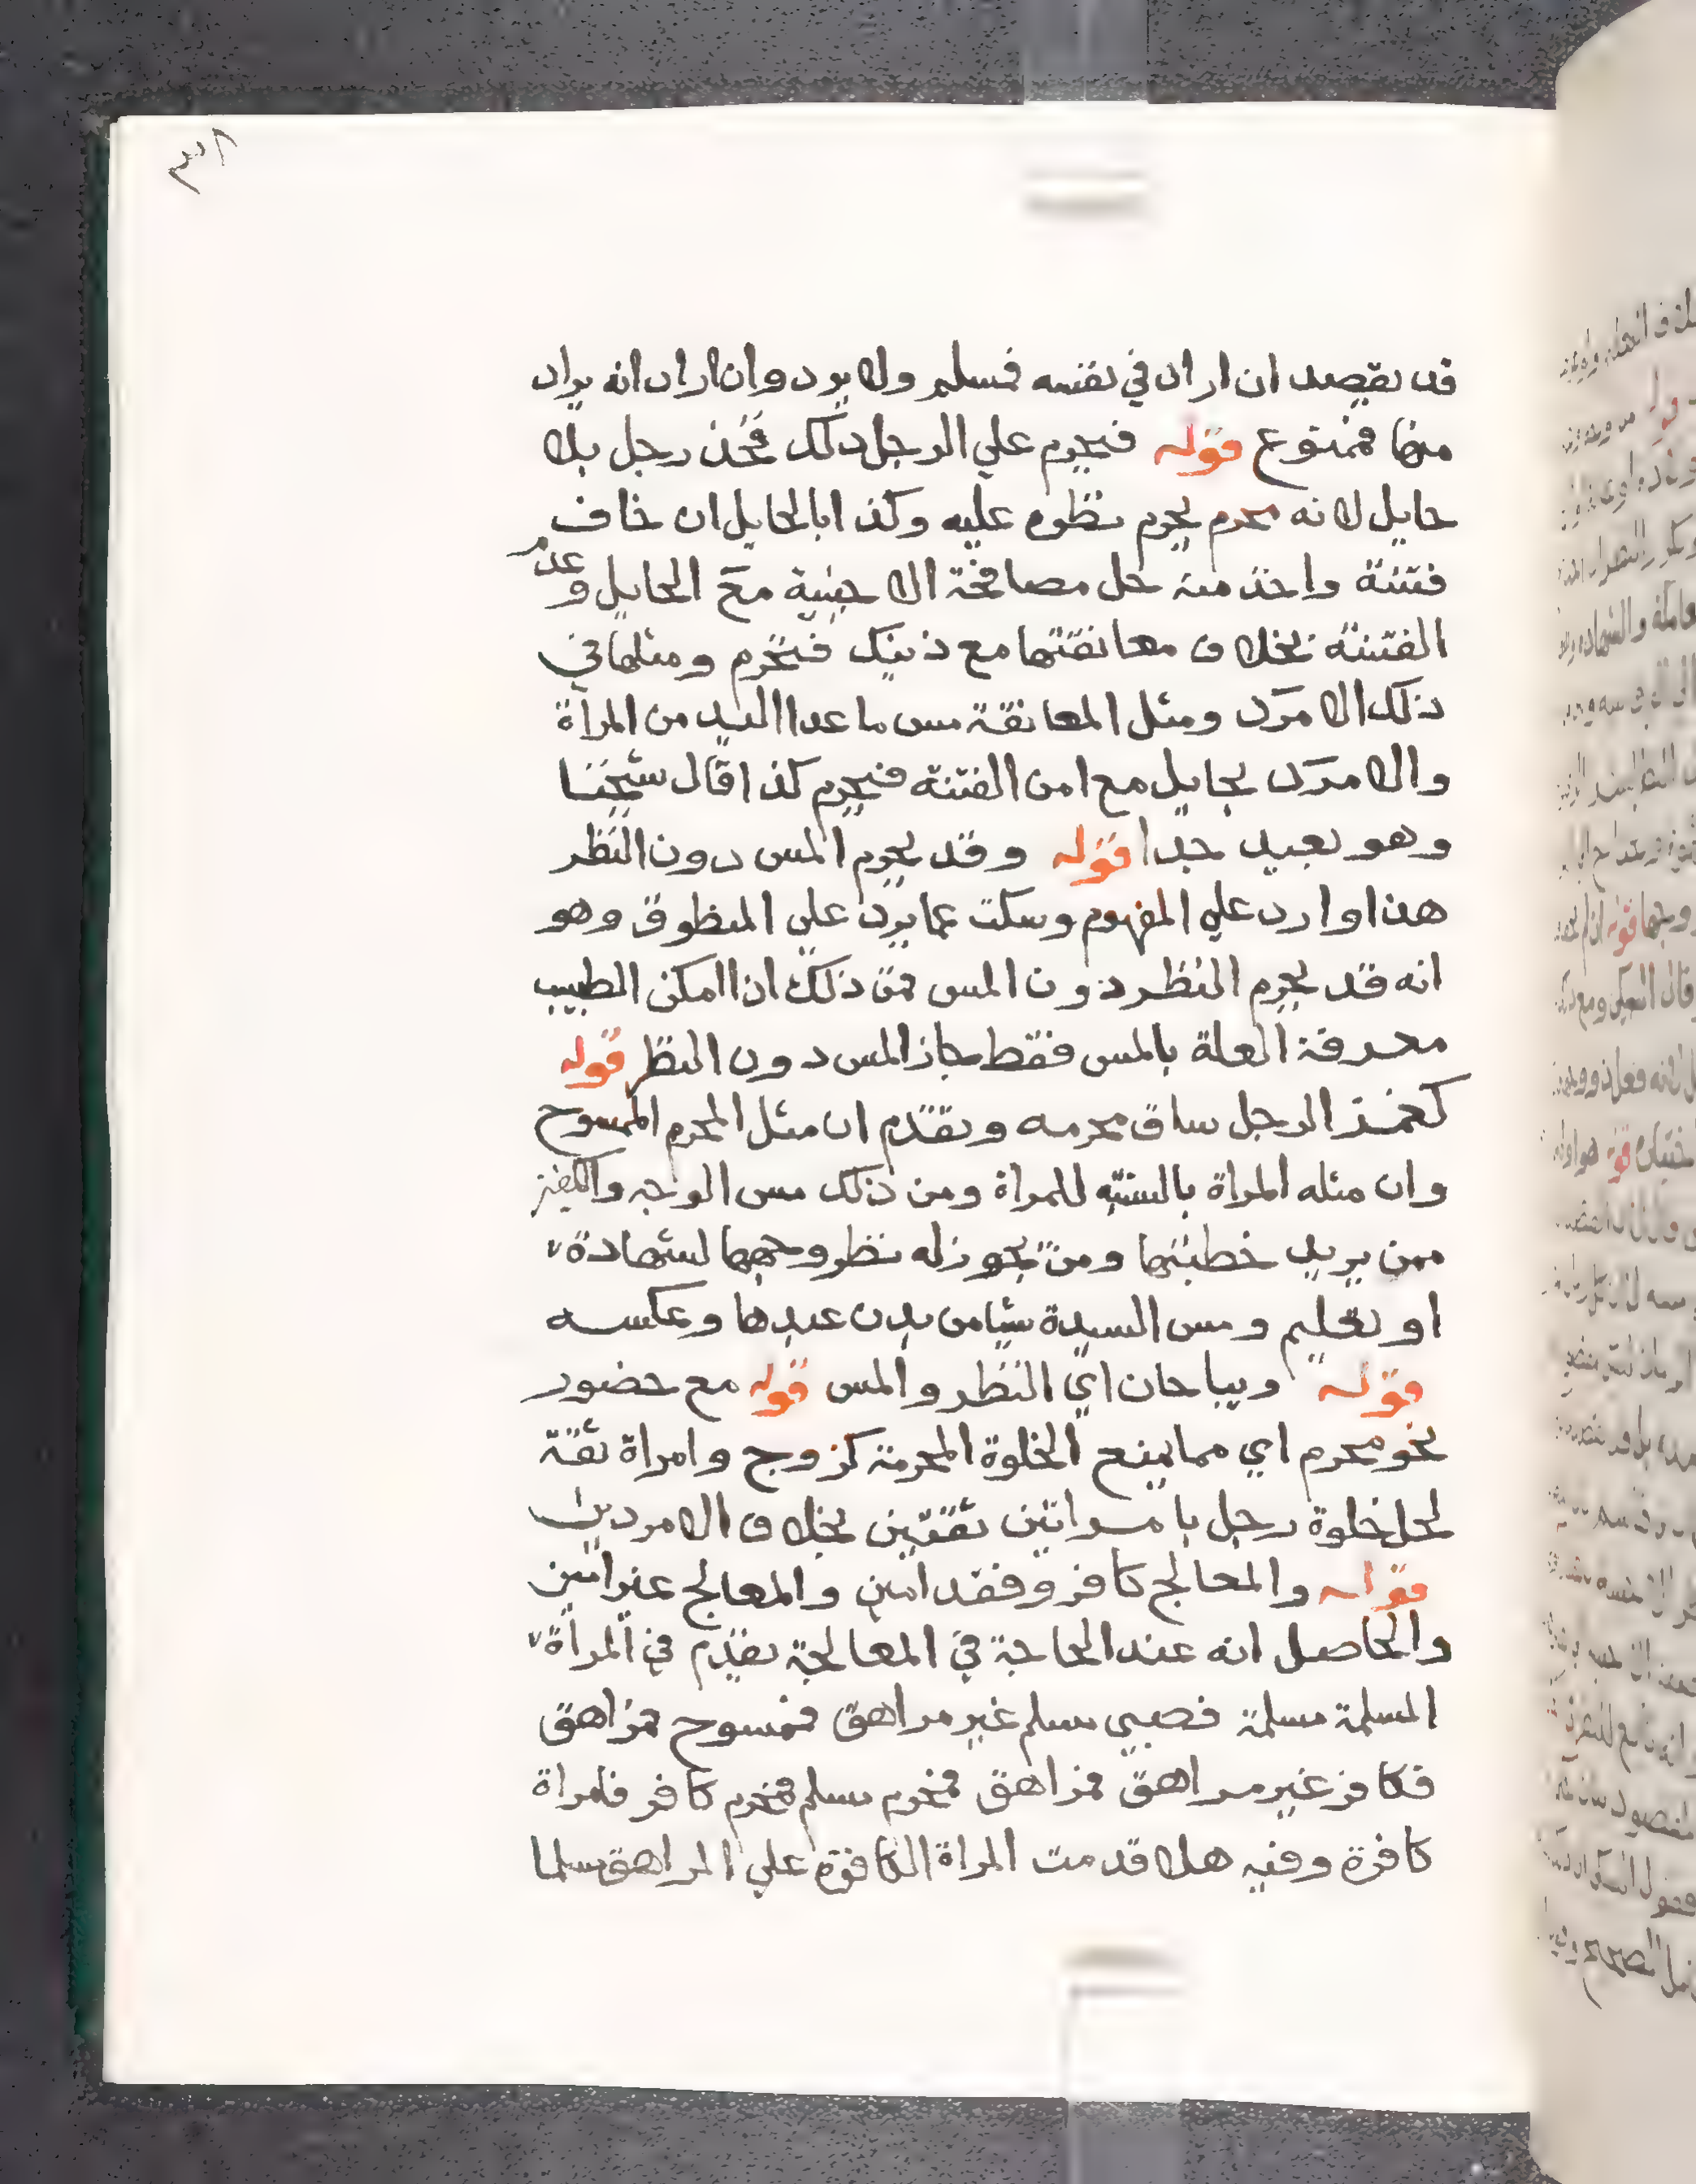 ٣٨
قد يقصد ان اراد في نفسه فمسلم ولا يرد وان اراد انه يراد
منها فممنوع قوله فيحرم علي الرجل دلك فخذ رجل بلا
حايل لانه محرم يحرم نظره عليه وكذا بالحايل ان خاف
فتنة واخذ منه حل مصافحة الاجنبية مع الحايل وعدم
الفتنة بخلاف معانقتها مع ذينك فتحرم ومثلها في
ذلك الامرد ومثل المعانقة مس ما عدا اليد من المراة
والامرد بحايل مع امن الفتنة فيحرم كذا قال شيخنا
وهو بعيد جدا قوله وقد يحرم المس دون النظر
هذا وارد علي المفهوم وسكت عما يرد علي المنطوق وهو
انه قد يحرم النظر دون المس فمن ذلك اذا امكن الطبيب
معرفة العلة بالمس فقط جاز المس دون النظر قوله
كغمز الرجل ساق محرمه وتقدم ان مثل المحرم الممسوح
وان مثله المراة بالنسبة للمراة ومن ذلك مس الوجه والكفين
ممن يريد خطبتها ومن يجوز له نظر وجهها لشهادة
او تعليم ومس السيدة شيا من بدن عبدها وعكسه
قوله ويباحان اي النظر والمس قوله مع حضور
نحو محرم اي مما يمنع الخلوة المحرمة كزوج وامراة ثقة
لحل خلوة رجل بامراتين ثقتين بخلاف الامردين
قوله والمعالج كافر وفقد امين والمعالج غير امين
والحاصل انه عند الحاجة في المعالجة يقدم في المراة
المسلمة مسلمة فصبي مسلم غير مراهق فممسوح فمراهق
فكافر غير مراهق فمراهق فمحرم مسلم فمحرم كافر فامراة
كافرة وفيه هلا قدمت المراة الكافرة علي المراهق مسلما